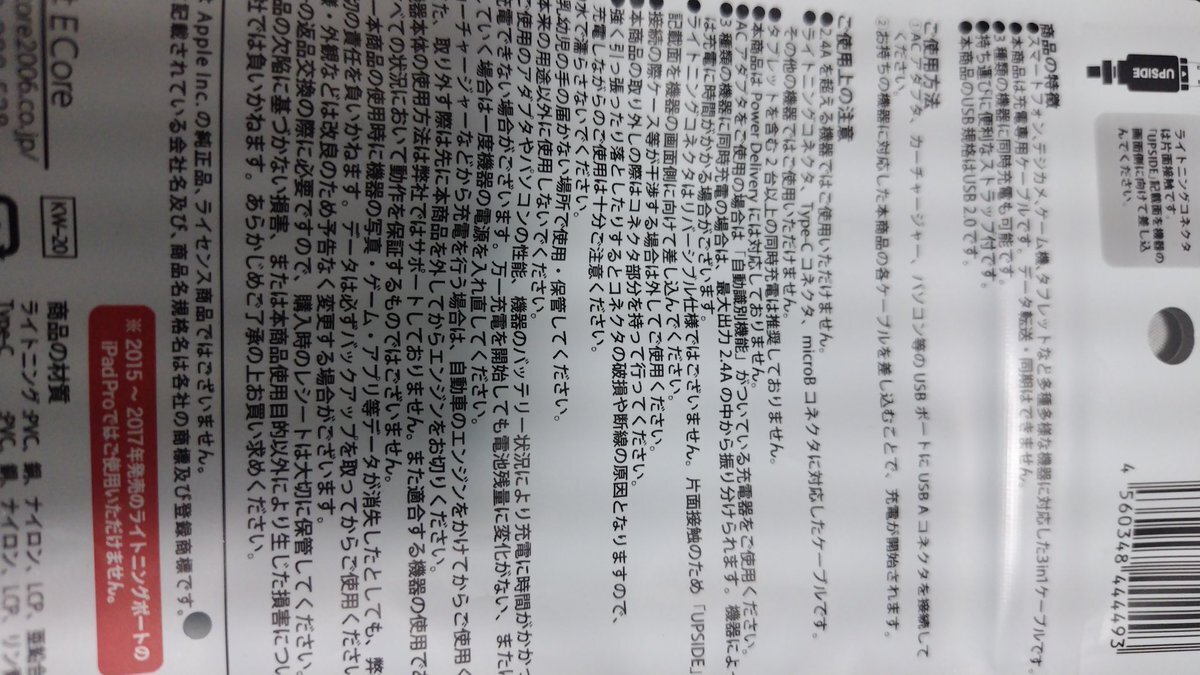 UPSIDE
ライトニングコネクタ
は片面接触です。
「UPSIDE」記載面を機器の
画面側に向けて差し込
んでください。
商品の特徴
●スマートフォン、デジカメ、ゲーム機、タブレットなど多種多様な機器に対応した3in1ケーブルです。
●本商品は充電専用ケーブルです。データ転送・同期はできません。
●3種類の機器に同時充電も可能です。
●持ち運びに便利なストラップ付です。
●本商品のUSB規格はUSB 2.0です。
ご使用方法
①ACアダプタ、カーチャージャー、パソコン等のUSBポートにUSB Aコネクタを接続して
ください。
②お持ちの機器に対応した本商品の各ケーブルを差し込むことで、充電が開始されます。
ご使用上の注意
●2.4Aを超える機器ではご使用いただけません。
●ライトニングコネクタ、Type-Cコネクタ、microBコネクタに対応したケーブルです。
その他の機器ではご使用いただけません。
●タブレットを含む2台以上の同時充電は推奨しておりません。
●本商品はPower Deliveryには対応しておりません。
●ACアダプタをご使用の場合は「自動識別機能」がついている充電器をご使用ください。
●3種類の機器に同時充電の場合は、最大出力2.4Aの中から振り分けられます。機器によっ
は充電に時間がかかる場合がございます。
●ライトニングコネクタはリバーシブル仕様ではございません。片面接触のため「UPSIDE」
記載面を機器の画面側に向けて差し込んでください。
接続の際ケース等が干渉する場合は外してご使用ください。
本商品の取り外しの際はコネクタ部分を持って行ってください。
強く引っ張ったり落としたりするとコネクタの破損や断線の原因となりますので、
充電しながらのご使用は十分ご注意ください。
水で濡らさないでください。
乳幼児の手の届かない場所で使用・保管してください。
本来の用途以外に使用しないでください。
ご使用のアダプタやパソコンの性能、機器のバッテリー状況により充電に時間がかかっ
充電できない場合がございます。万一充電を開始しても電池残量に変化がない、または
ていく場合は一度機器の電源を入れ直してください。
ーチャージャーなどから充電を行う場合は、自動車のエンジンをかけてからご使用く
た、取り外す際は先に本商品を外してからエンジンをお切りください。
べての状況において動作を保証するものではございません。
器本体の使用方法は弊社ではサポートしておりません。また適合する機器の使用でお
一本商品の使用時に機器の写真・ゲーム・アプリ等データが消失したとしても、弊
切の責任を負いかねます。データは必ずバックアップを取ってからご使用ください
・外観などは改良のため予告なく変更する場合がございます。
の返品交換の際に必要ですので、購入時のレシートは大切に保管してください。
品の欠陥に基づかない損害、または本商品使用目的以外により生じた損害につい
社では負いかねます。あらかじめご了承の上お買い求めください。
Apple Inc. の純正品、ライセンス商品ではございません。
記載されている会社名及び、商品名規格名は各社の商標及び登録商標です。
※2015～2017年発売のライトニングポートの
iPad Proではご使用いただけません。
商品の材質
ライトニング:PVC、銅、ナイロン、LCP、亜鉛合
Type-C :PVC、銅、ナイロン、LCP、リン
ECore
ore2006.co.jp/
KW-20
4 560348 444493